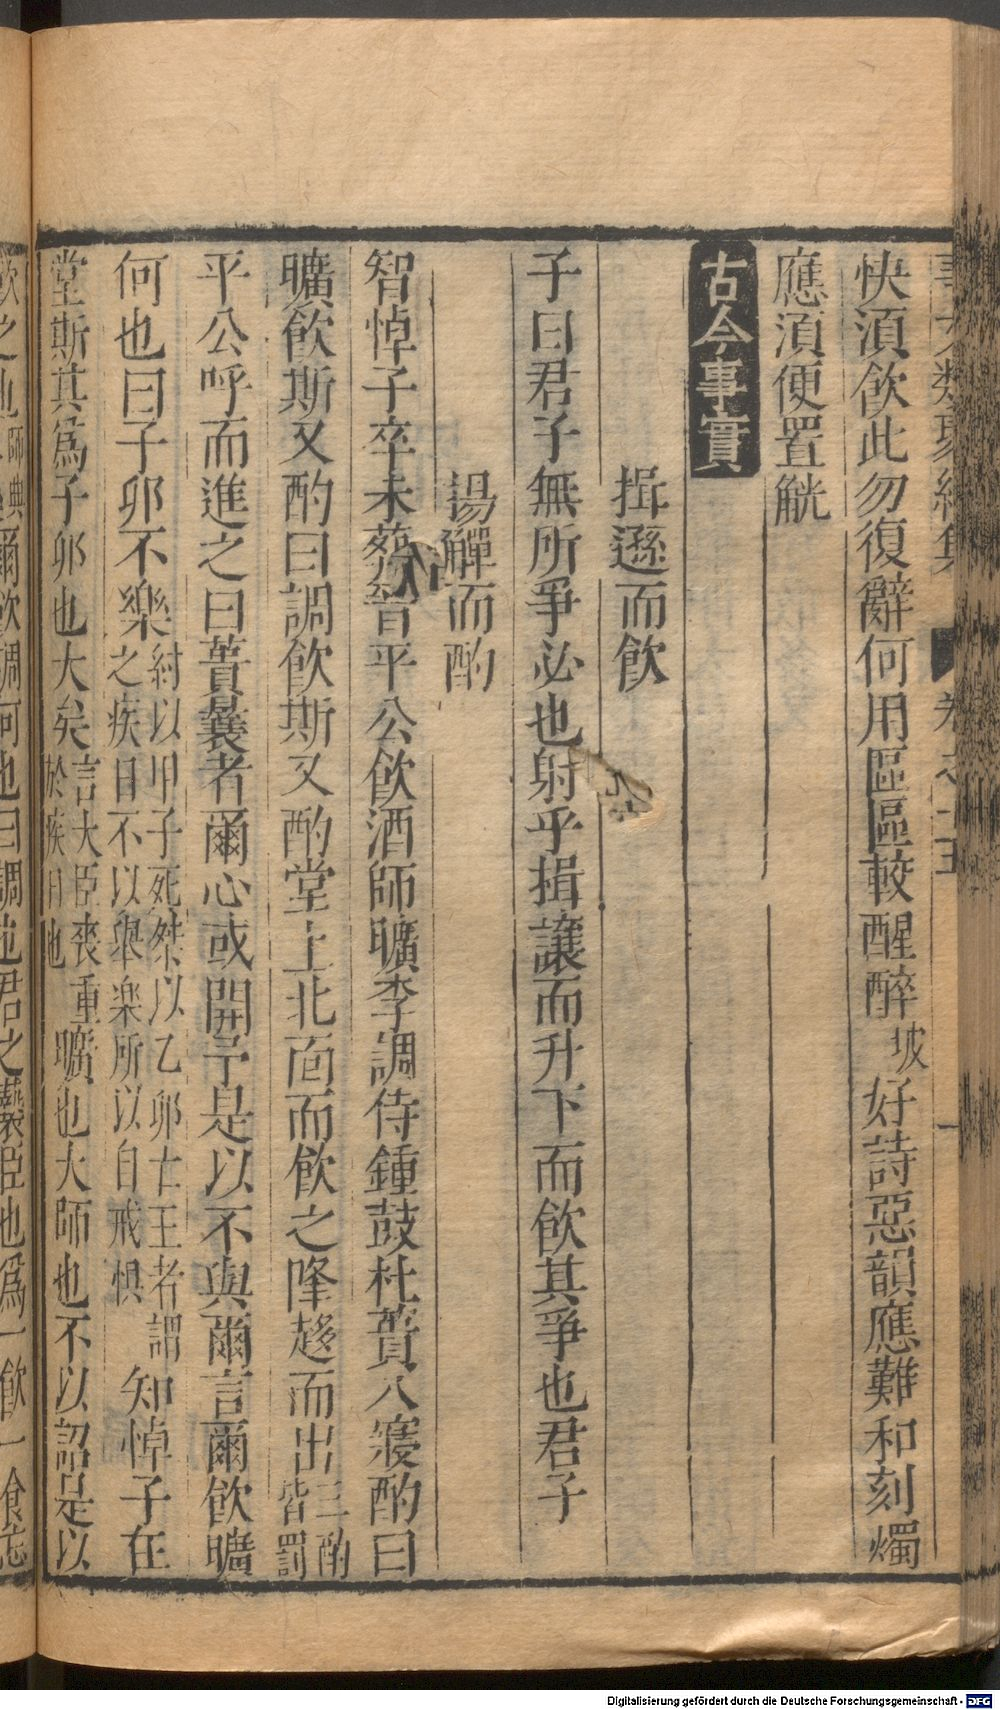 事文類聚續集 卷之十五
快須飲此勿復辭何用區區較醒醉坡好詩惡韻應難和刻燭
應須便置觥
古今事實
揖遜而飲
子曰君子無所爭必也射乎揖讓而升下而飲其爭也君子
揚觶而酌
智悼子卒未葬晉平公飲酒師曠李調侍鍾鼓杜蕢入寢酌曰
曠飲斯又酌曰調飲斯又酌堂上北面而飲之降趍而出三酌皆罰
平公呼而進之曰蕢曩者爾心或開予是以不與爾言爾飲曠
何也曰子卯不樂紂以甲子死桀以乙卯亡王者謂之疾日不以舉楽所以自戒惧知悼子在
堂斯其爲子卯也大矣言大臣喪重於疾日也曠也大師也不以詔是以
飲之也師典爾飲調何也曰調也君之褻臣也爲一飲一食忘
Digitalisierung gefördert durch die Deutsche Forschungsgemeinschaft - DFG